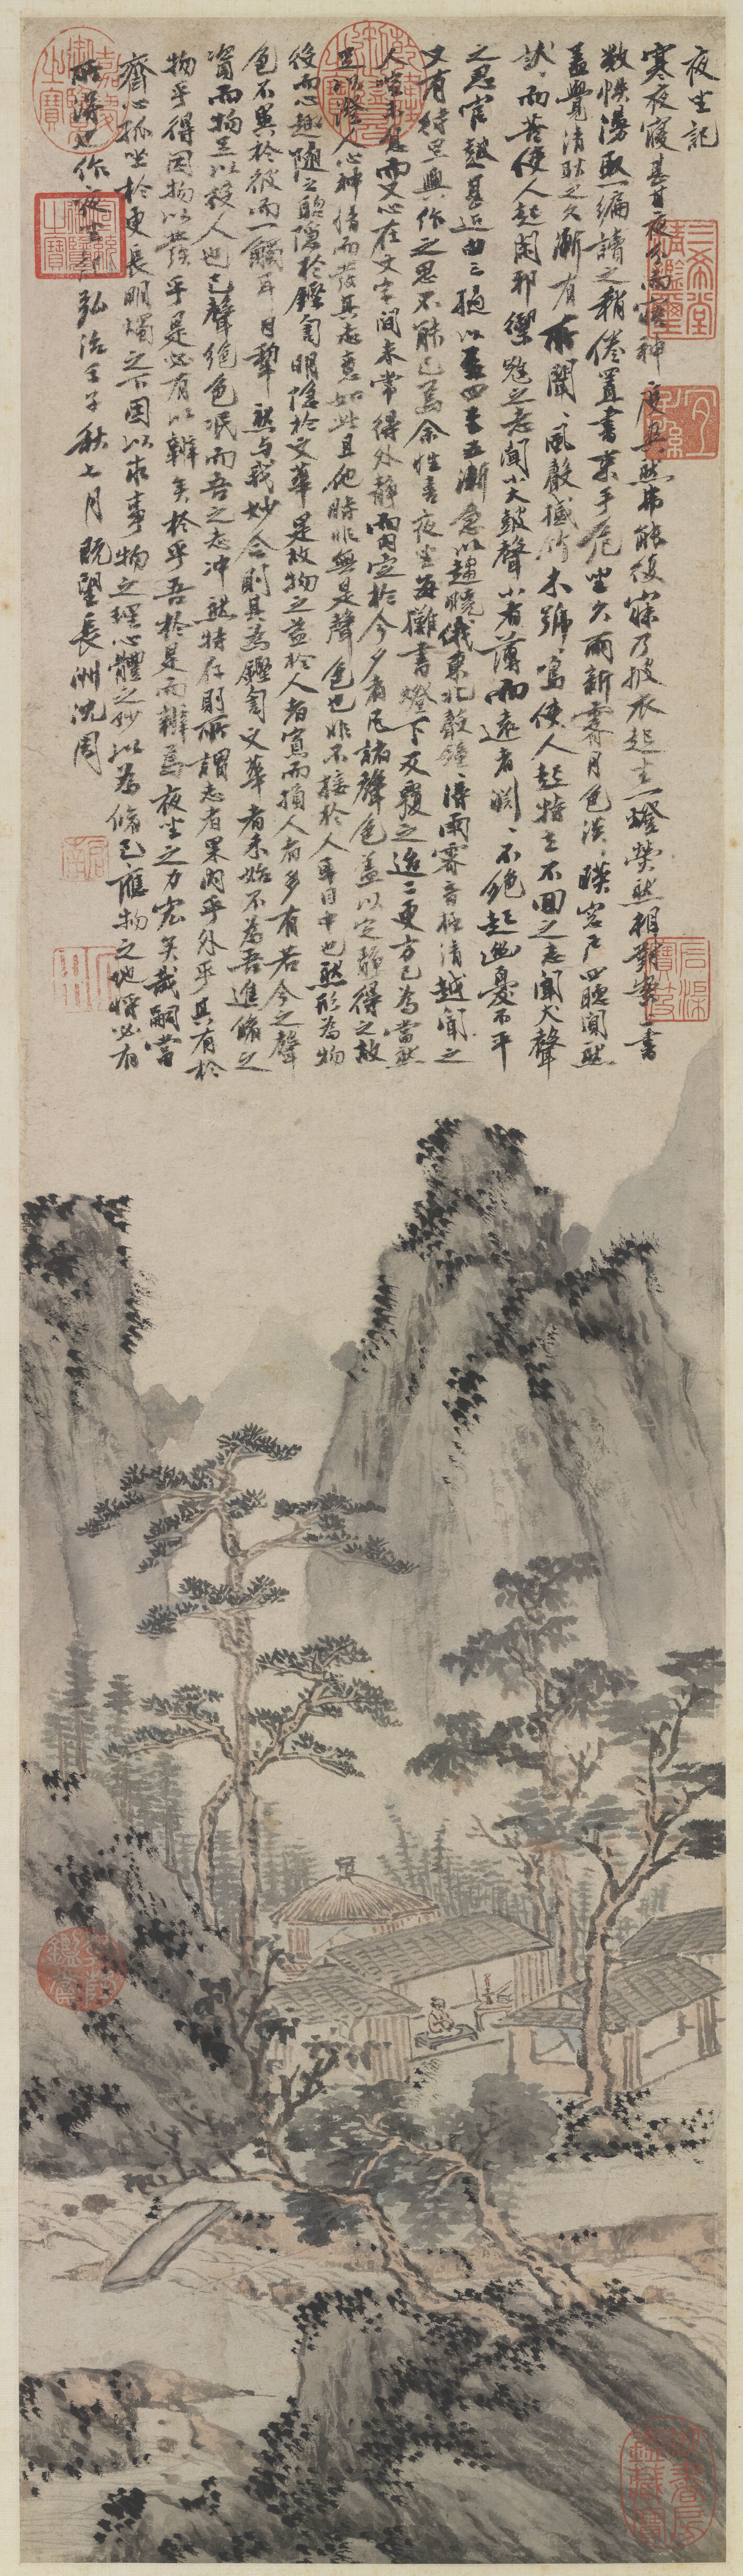 夜坐記
寒夜寢甚甘夜分而寤神度爽然弗能復寐乃披衣起坐一燈熒然相對案上書
數帙漫取一編讀之稍倦置書束手危坐久雨新霽月色淡々映窗戶四聽闃然
蓋覺清耿之久漸有所聞々風聲撼竹木號々鳴使人起特立不回之志聞犬聲
狺々而苦使人起閑邪禦寇之志聞小大鼓聲小者薄而遠者淵々不絕起幽憂不平
之思官鼓甚近由三撾以至四至五漸急以趨曉俄東北聲鐘々得雨霽音極清越聞之
又有待旦興作之思不能已焉余性喜夜坐每攤書燈下反覆之迨二更方已為當然
人喧未息而又心在文字間未常得外靜而內定於今夕者凡諸聲色蓋以定靜得之故
足以澄人心神情而發其志意如此且他時非無是聲色也非不接於人耳目中也然形為物
役而心趣隨之聰隱於鏗訇明隱於文華是故物之益於人者寡而損人者多有若今之聲
色不異於彼而一觸耳目犁然與我妙合則其為鏗訇文華者未始不為吾進脩之
資而物足以役人也已聲絕色泯而吾之志沖然特存則所謂志者果內乎外乎其有於
物乎得因物以發乎是必有以辨矣於乎吾於是而辨焉夜坐之力宏矣哉嗣當
齋心孤坐於更長明燭之下因以求事物之理心體之妙以為脩己應物之地將必有
所得也作夜坐記弘治壬子秋七月既望長洲沈周
三希堂精鑑璽
宜子孫
石渠寶笈
乾隆御覽之寶
嘉慶御覽之寶
宣統御覽之寶
啟南
石田
乾隆鑑賞
御書房鑑藏寶